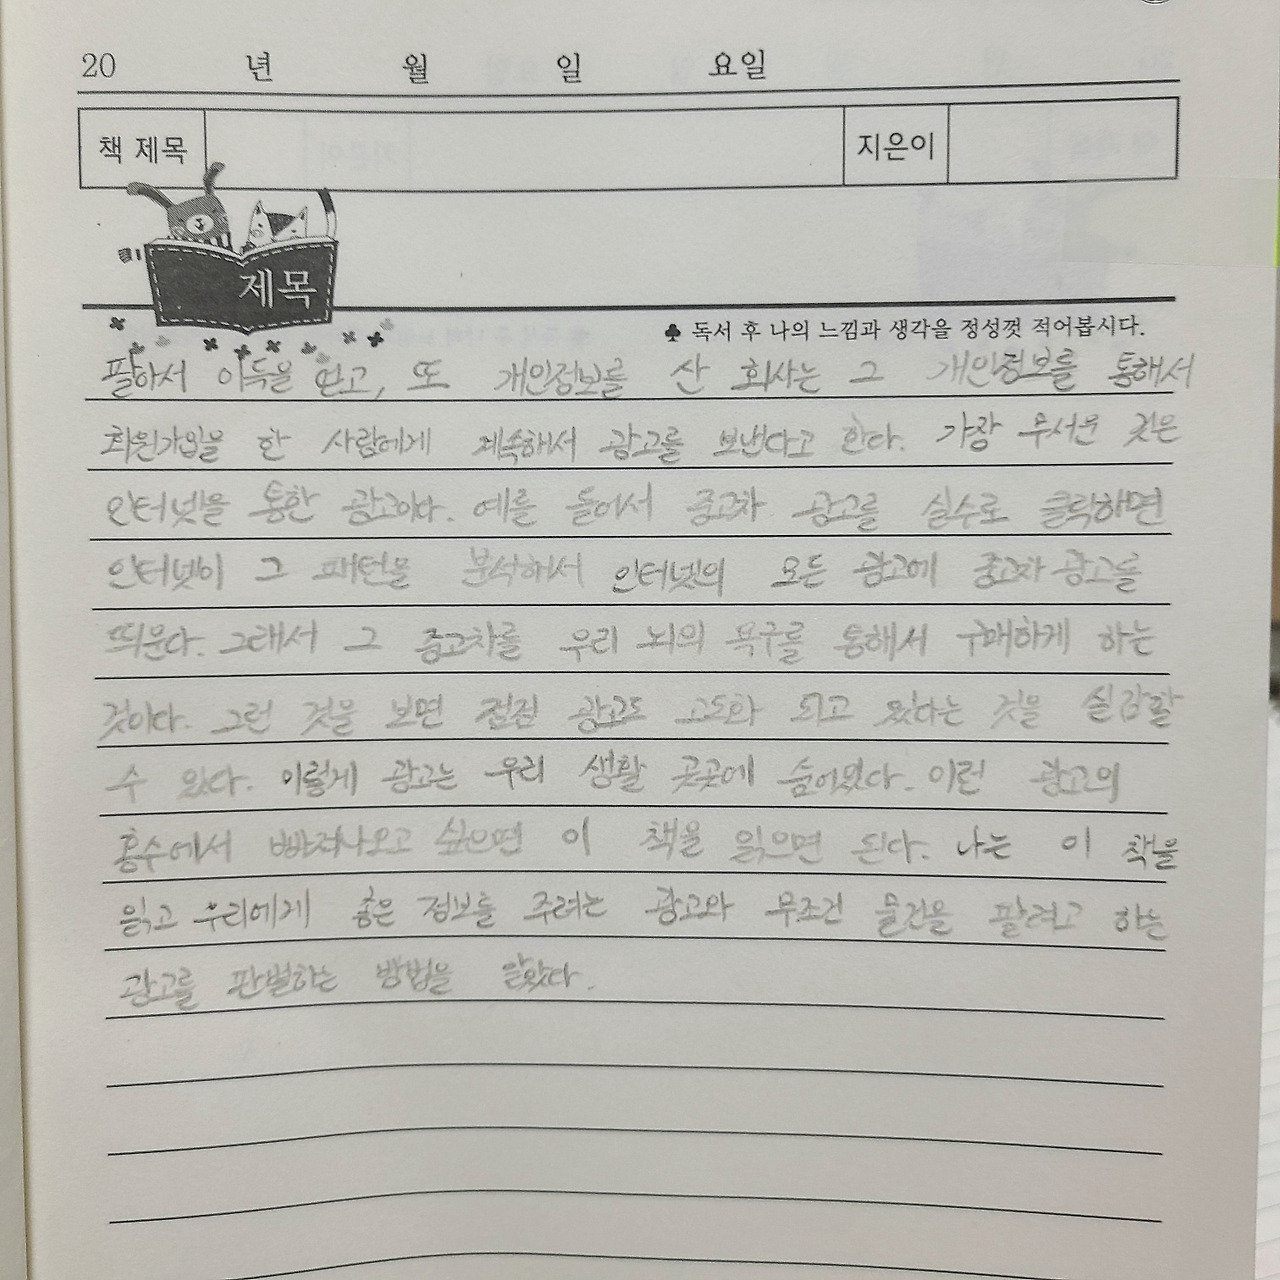 20 년 월 일 요일
책 제목 지은이
제목
♣ 독서 후 나의 느낌과 생각을 정성껏 적어봅시다.
팔아서 이득을 얻고, 또 개인정보를 산 회사는 그 개인정보를 통해서
회원가입을 한 사람에게 계속해서 광고를 보낸다고 한다. 가장 무서운 것은
인터넷을 통한 광고이다. 예를 들어서 중고차 광고를 실수로 클릭하면
인터넷이 그 패턴을 분석해서 인터넷의 모든 광고에 중고차 광고를
띄운다. 그래서 그 중고차를 우리 뇌의 욕구를 통해서 구매하게 하는
것이다. 그런 것을 보면 점점 광고도 고도화 되고 있다는 것을 실감할
수 있다. 이렇게 광고는 우리 생활 곳곳에 숨어있다. 이런 광고의
홍수에서 빠져나오고 싶으면 이 책을 읽으면 된다. 나는 이 책을
읽고 우리에게 좋은 정보를 주려는 광고와 무조건 물건을 팔려고 하는
광고를 판별하는 방법을 알았다.